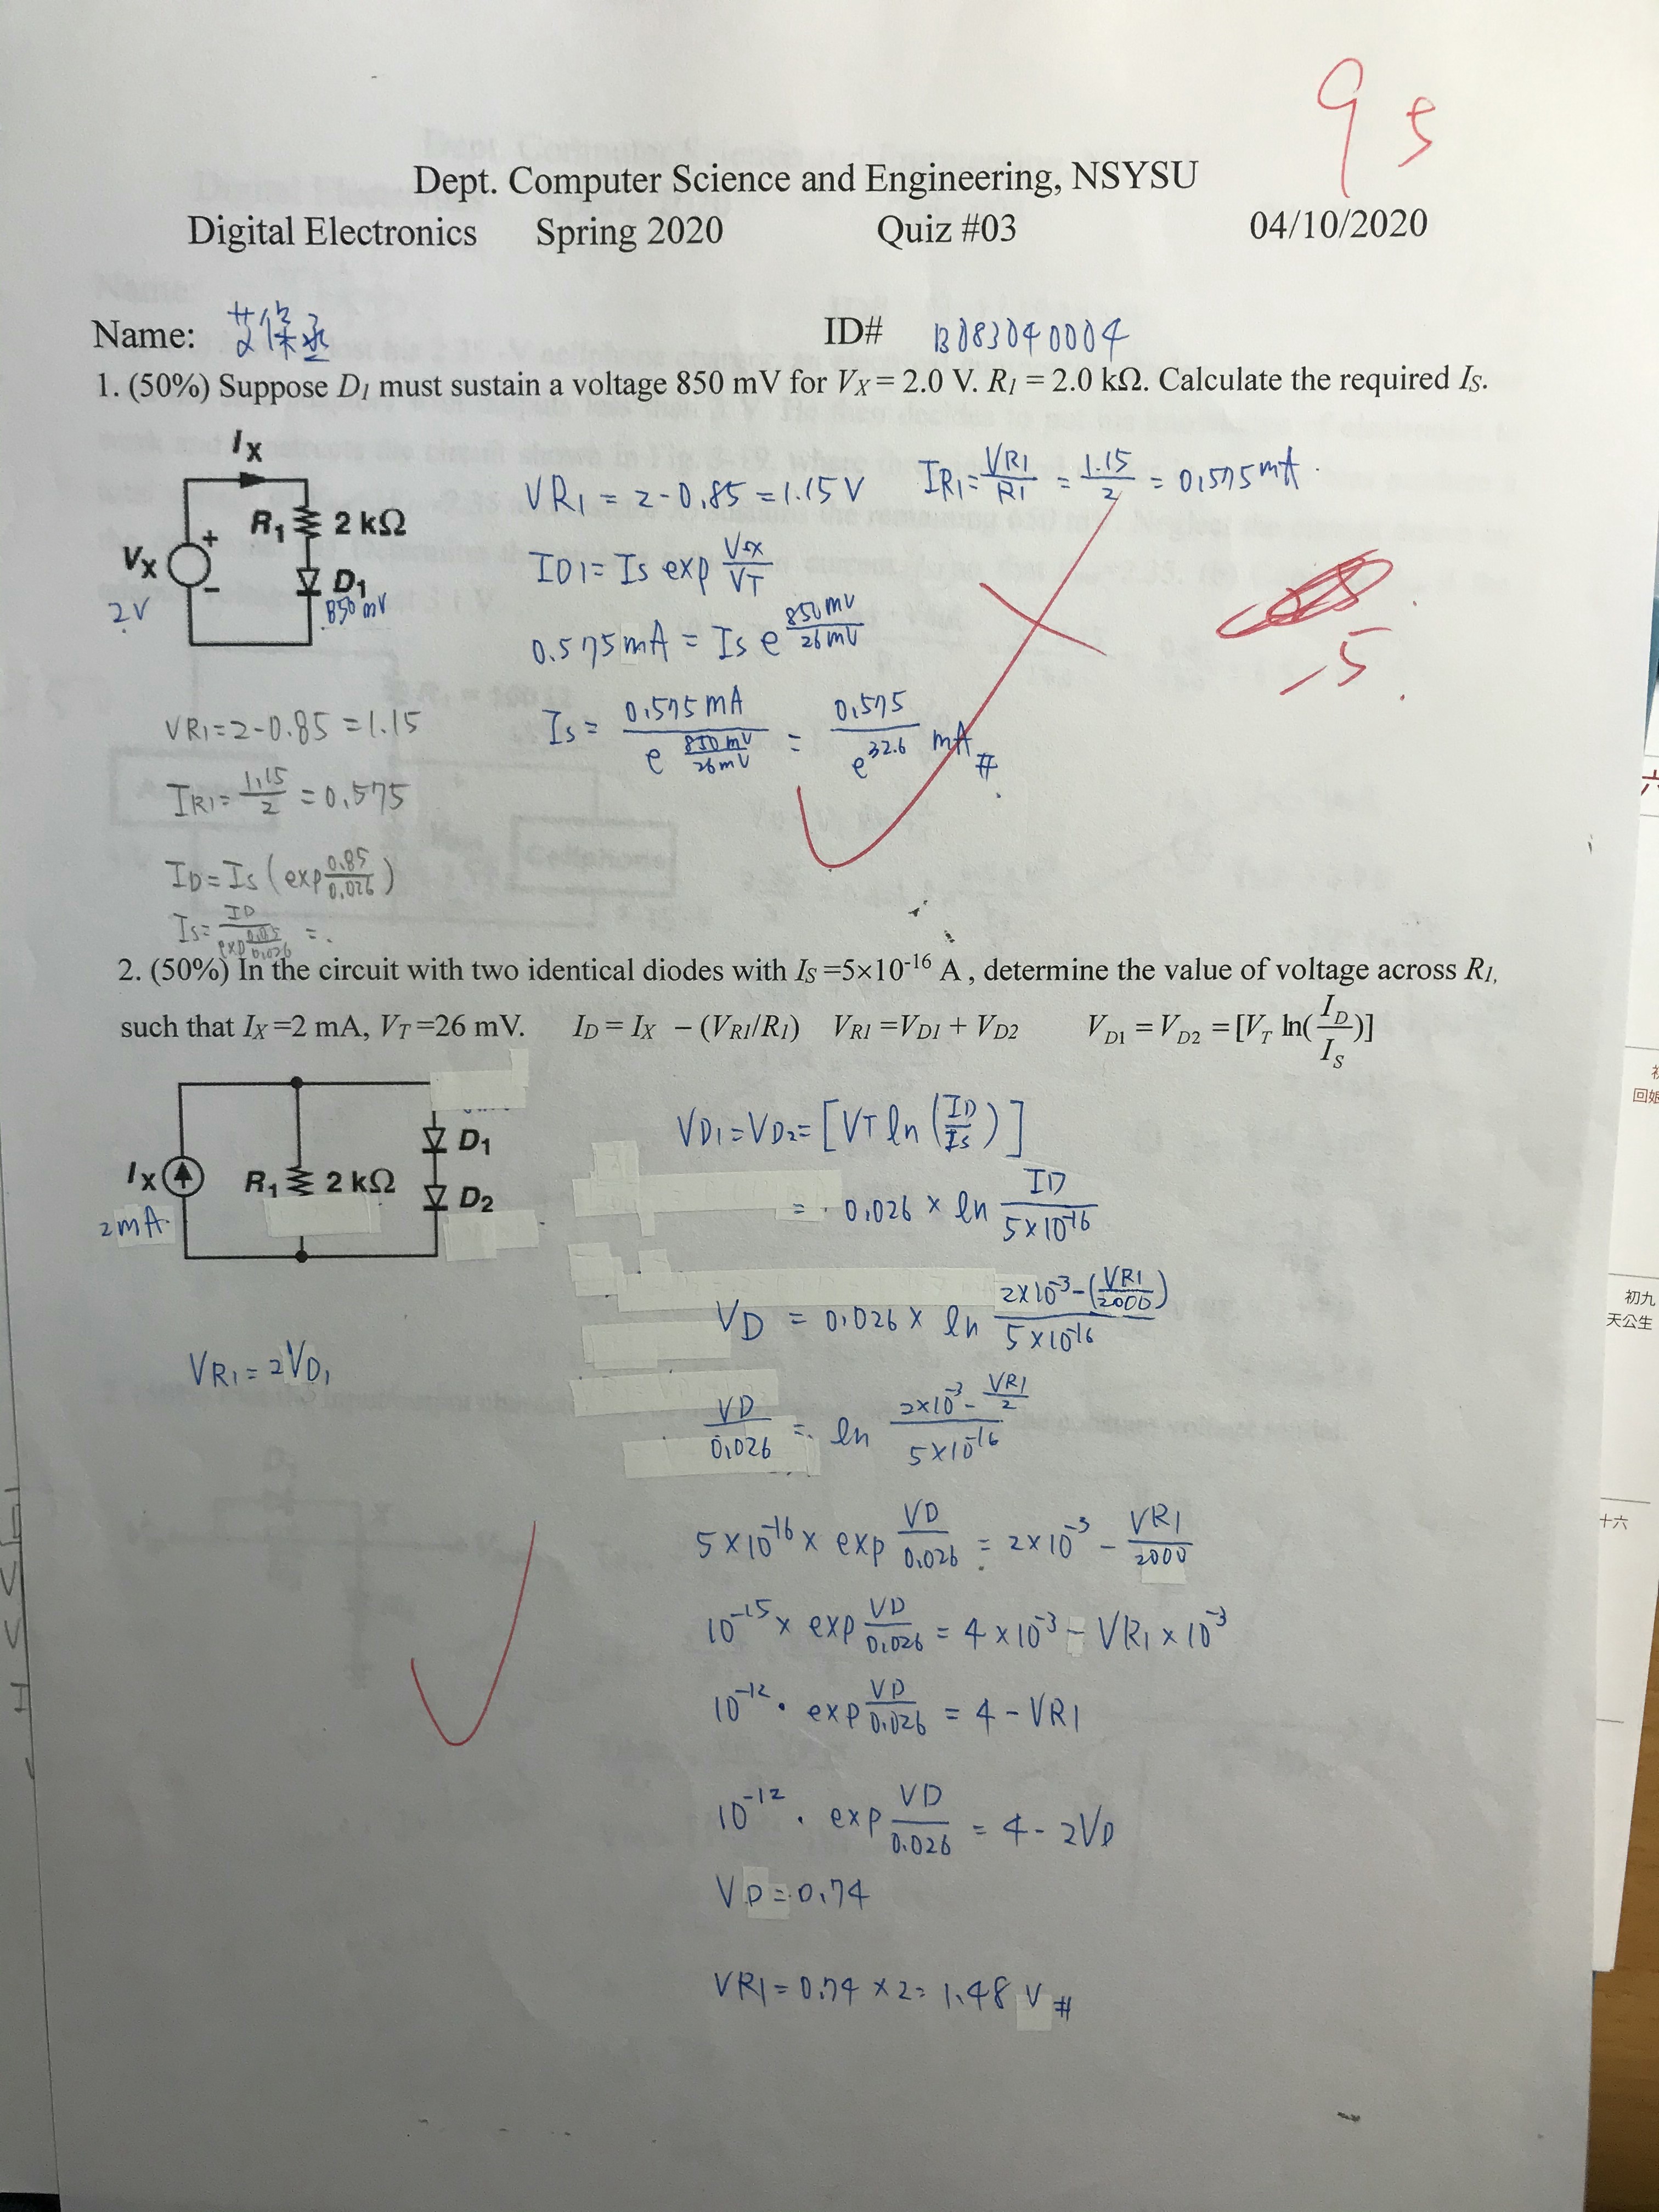 95
Dept. Computer Science and Engineering, NSYSU
Digital Electronics Spring 2020 Quiz #03 04/10/2020
Name: 艾保丞 ID# B083040004
1. (50%) Suppose D1 must sustain a voltage 850 mV for VX = 2.0 V. R1 = 2.0 kΩ. Calculate the required IS.
IX
R1 2 kΩ
VX + -
D1
2V
850 mV
VR1 = 2-0.85 = 1.15 V IR1 = VR1/R1 = 1.15/2 = 0.575 mA
ID1 = Is exp VDX/VT
0.575 mA = Is e^(850mV/26mV)
Is = 0.575 mA / e^(850mV/26mV) = 0.575/e^32.6 mA #
-5
VR1 = 2-0.85 = 1.15
IR1 = 1.15/2 = 0.575
ID = Is (exp 0.85/0.026)
Is = ID / exp 0.85/0.026 =
2. (50%) In the circuit with two identical diodes with IS =5×10^-16 A , determine the value of voltage across R1,
such that IX =2 mA, VT =26 mV. ID = IX − (VR1/R1) VR1 =VD1 + VD2 VD1 = VD2 = [VT ln(ID/IS)]
IX
2mA
R1 2 kΩ
D1
D2
VR1 = 2VD1
VD1 = VD2 = [VT ln (ID/Is)]
= 0.026 × ln ID/5×10^-16
VD = 0.026 × ln (2×10^-3 - (VR1/2000))/5×10^-16
VD/0.026 = ln (2×10^-3 - VR1/2)/5×10^-16
5×10^-16 × exp VD/0.026 = 2×10^-3 - VR1/2000
10^-15 × exp VD/0.026 = 4×10^-3 - VR1×10^-3
10^-12 · exp VD/0.026 = 4 - VR1
10^-12 · exp VD/0.026 = 4 - 2VD
VD = 0.74
VR1 = 0.74 × 2 = 1.48 V #
六
回娘
初九
天公生
十六